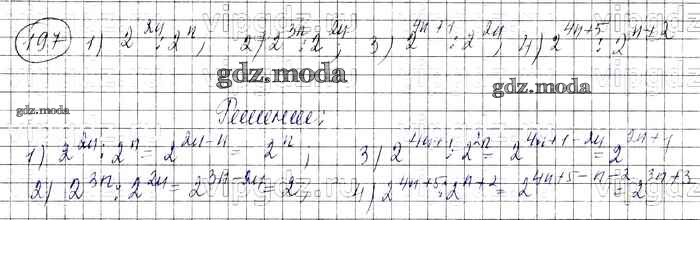 197 1) 2^{2n} : 2^n, 2) 2^{3n} : 2^{2n}; 3) 2^{4n+1} : 2^{2n}, 4) 2^{4n+5} : 2^{n+2}
gdz.moda
gdz.moda
gdz.moda
Решение:
1) 2^{2n} : 2^n = 2^{2n-n} = 2^n, 3) 2^{4n+1} : 2^{2n} = 2^{4n+1-2n} = 2^{2n+1}
2) 2^{3n} : 2^{2n} = 2^{3n-2n} = 2^n, 4) 2^{4n+5} : 2^{n+2} = 2^{4n+5-n-2} = 2^{3n+3}